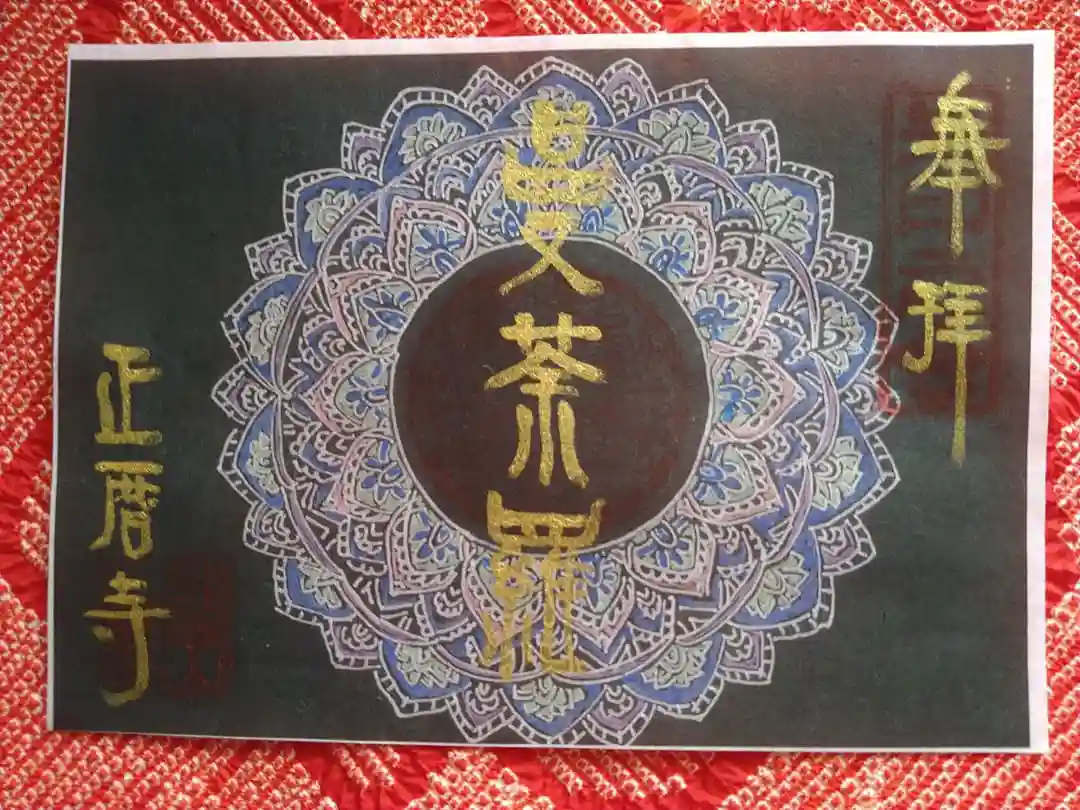 奉拝
曼荼羅
正暦寺